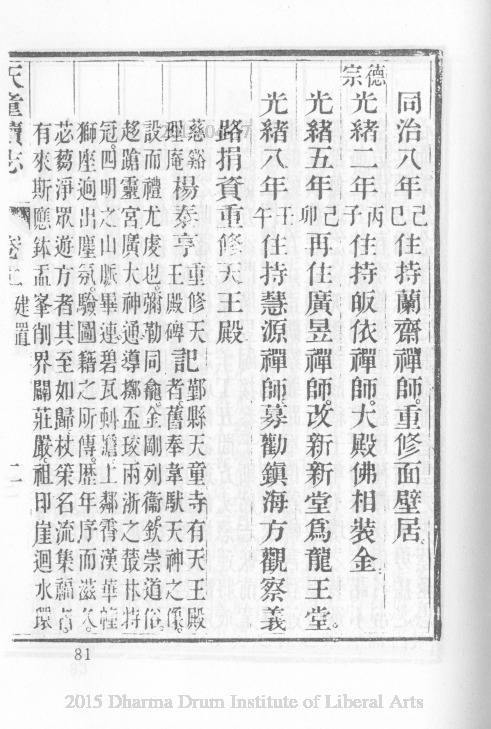 同治八年己巳住持蘭齋禪師。重修面壁居。
德宗光緒二年丙子住持皈依禪師。大殿佛相裝金。
光緒五年己卯再住廣昱禪師。改新新堂爲龍王堂。
光緒八年壬午住持慧源禪師。募勸鎭海方觀察義
路捐資重修天王殿
慈谿楊泰亨重修天王殿碑記鄞縣天童寺有天王殿
理庵者。舊奉韋馱天神之像。
設而禮尤虔也。彌勒同龕。金剛列衞。欽崇道俗。
趨蹌靈宮。廣大神通。導擲盃珓。兩浙之叢林特
冠。四明之山脈畢連。碧瓦斜澹。上鄰霄漢。華幢
獅座。迥出塵氛。驗圖籍之所傳。歷年序而滋久。
苾蒭淨眾。遊方者其至如歸。杖策名流。集福者
有來斯應。鉢盂峯削。界闢莊嚴。祖印崖迴。水環
天童續志 卷上 建置 二
81
2015 Dharma Drum Institute of Liberal Arts